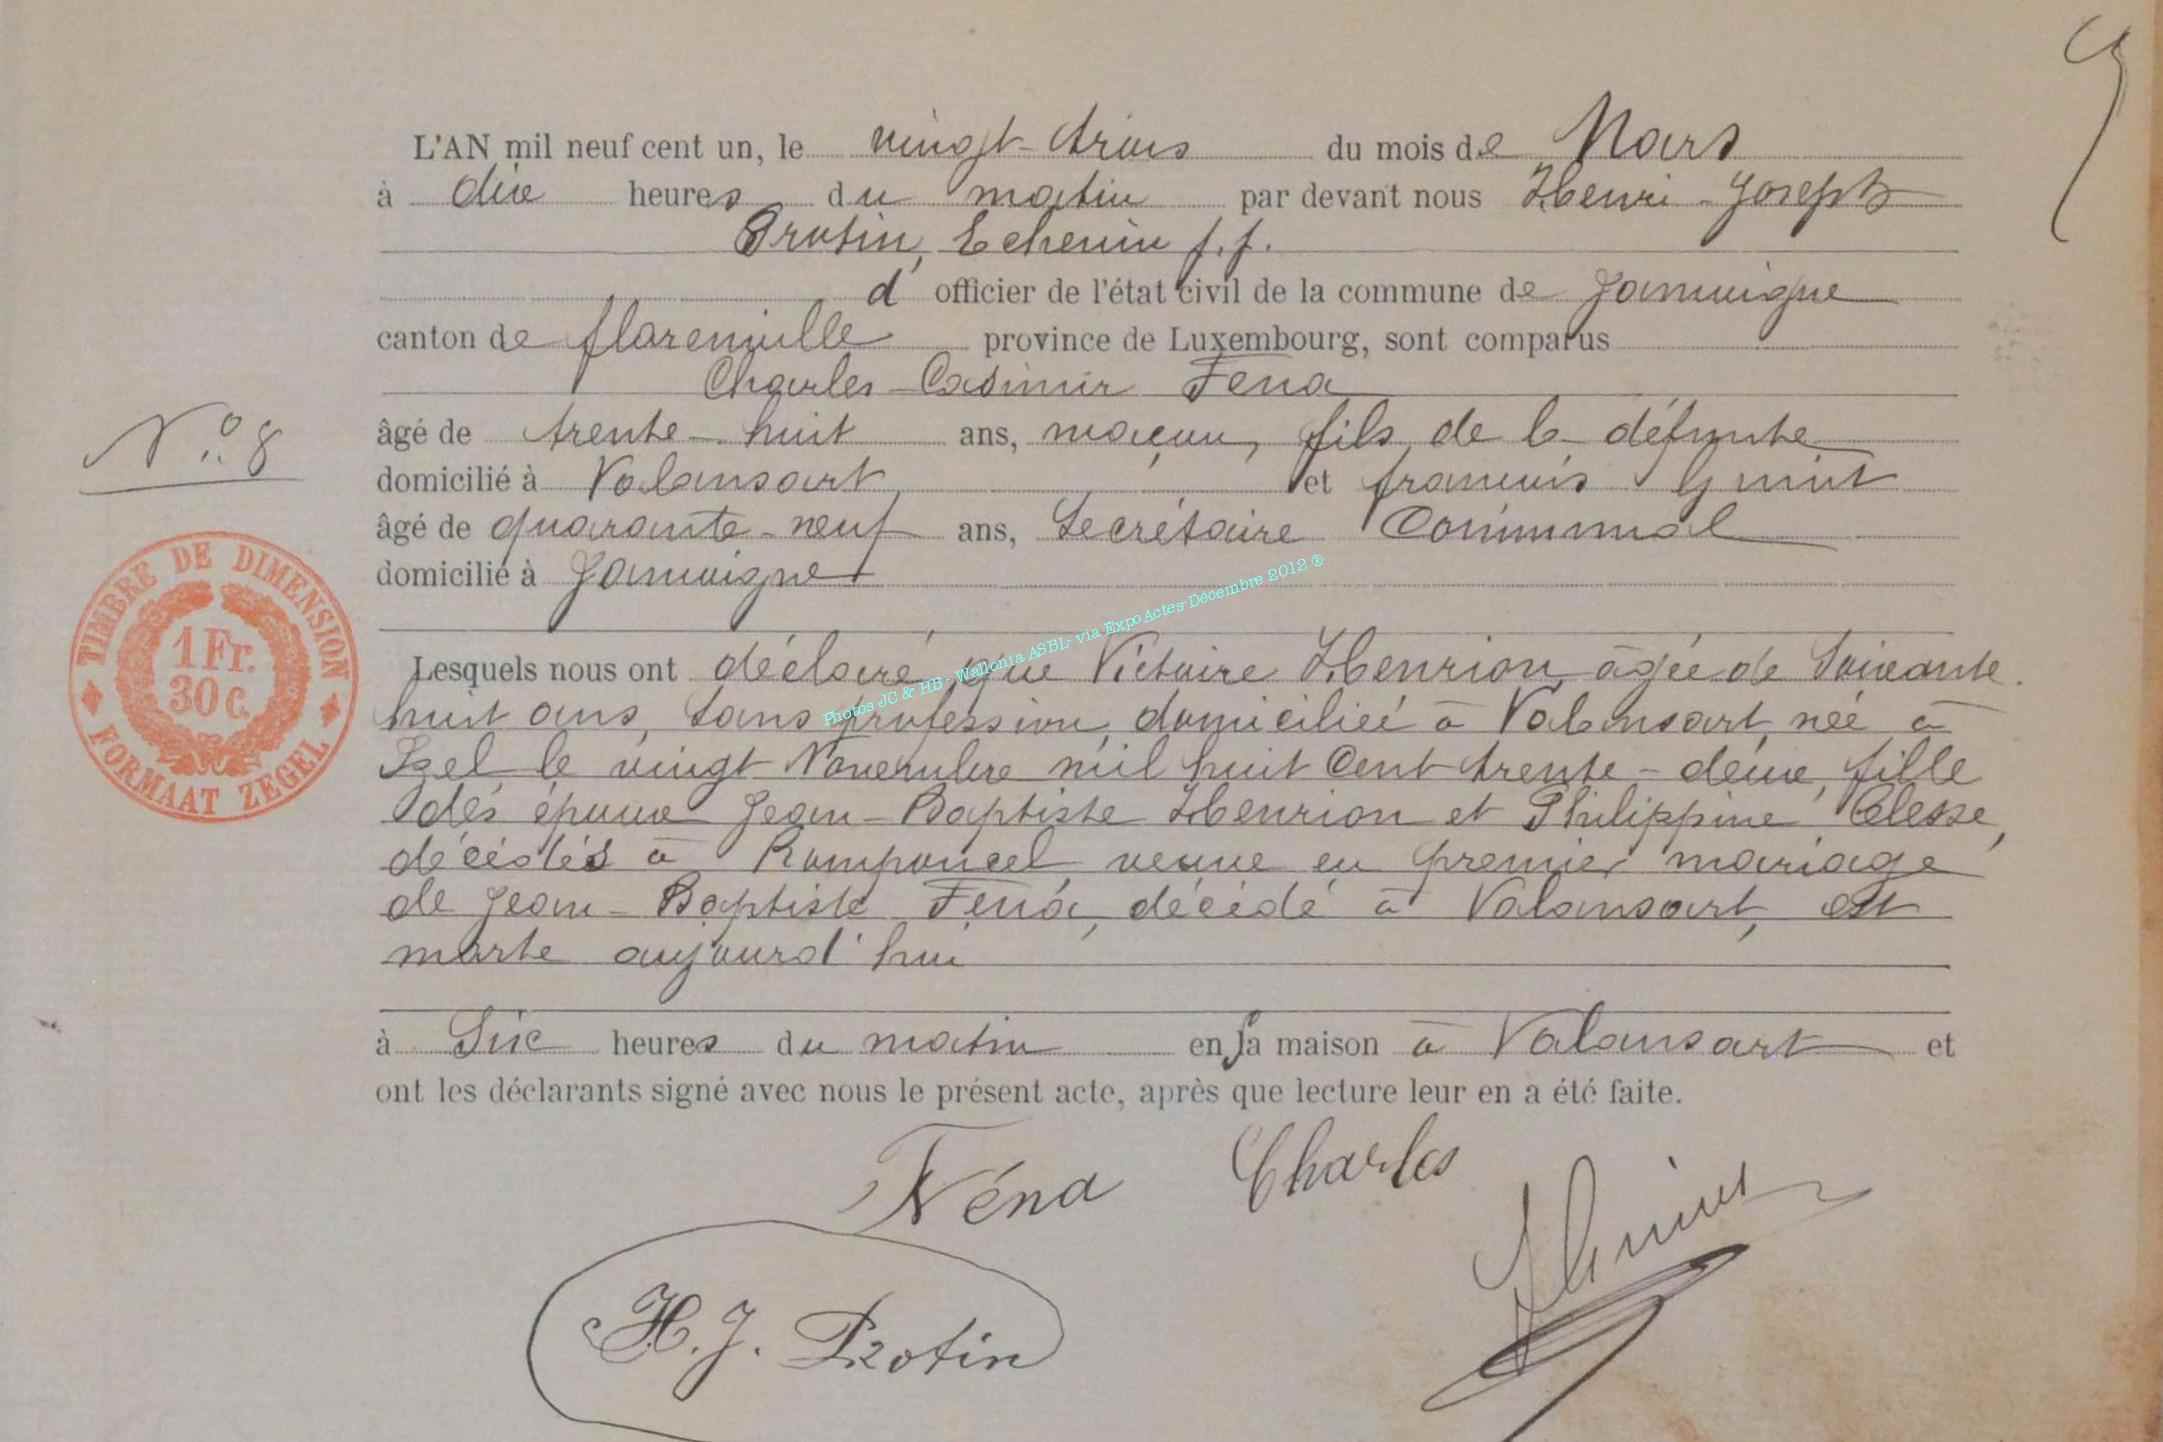 L'AN mil neuf cent un, le vingt-trois du mois de Mars
à dix heures du matin par devant nous Henri-Joseph
Protin, Echevin f.f.
d' officier de l'état civil de la commune de Jamoigne
canton de florenville province de Luxembourg, sont comparus
Charles-Casimir Fena
N° 8
âgé de trente-huit ans, maçon, fils de la défunte
domicilié à Valansart et françois
âgé de quarante-neuf ans, Secrétaire Communal
domicilié à Jamoigne
TIMBRE DE DIMENSION
1 Fr.
30 c.
FORMAAT ZEGEL
Photos JC & HB - Wallonia ASBL- via ExpoActes-Décembre 2012 ®
Lesquels nous ont déclaré que Victoire Henrion, âgée de Soixante
huit ans, Sans profession, domiciliée à Valansart, née à
Izel le vingt Novembre mil huit Cent trente-deux, fille
des époux Jean-Baptiste Henrion et Philippine Clesse,
décédés à Romponcel, veuve en premier mariage
de Jean-Baptiste Fena, décédé à Valansart, est
morte aujourd'hui
à Six heures du matin en sa maison à Valansart et
ont les déclarants signé avec nous le présent acte, après que lecture leur en a été faite.
Féna Charles
H. J. Protin